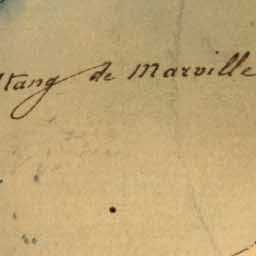 Etang de Marville